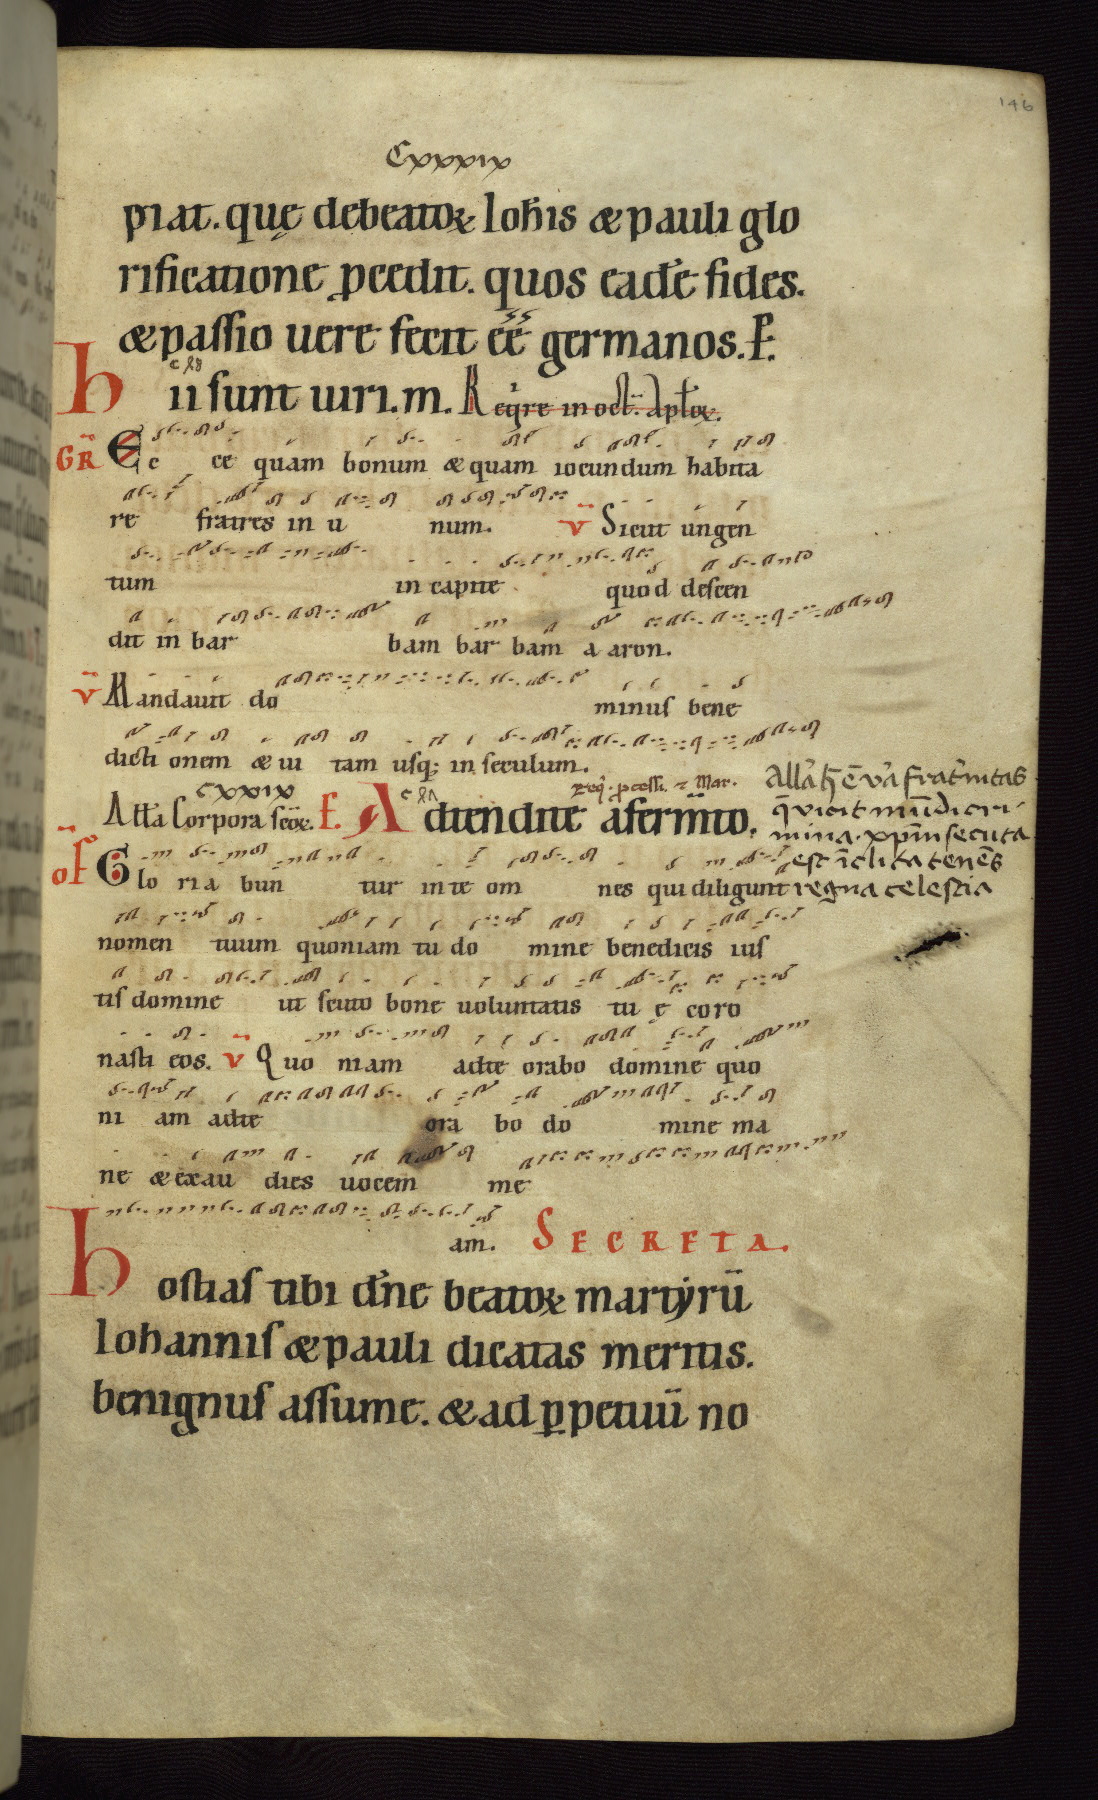 146
Cxxxix
piat. quę debeatoꝝ Ioh̄is & pauli glo
rificatione ꝓcedit. quos eadē fides.
& passio uere fecit eē̄ germanos. E.
Hii sunt uiri. m. Reqͥre in oct̄. Apl̄oꝝ.
GR̄ Ecce quam bonum & quam iocundum habita
re fratres in unum. v̄ Sicut ungen
tum in capite quod descen
dit in barbam barbam aaron.
v̄ Mandauit dominus bene
dictionem & uitam usq; in seculum.
cxxix
req̄. ꝓcessi. ⁊ Mar.
All̄a Corpora sc̄oꝝ. E Adtendite afermīto.
Allā h̄ ē v̄a frat̄nitas
q̄ vicit mūdi cri
mina. xp̄m secuta
est īclita tenēs
regna celestia
oF̄ Gloriabuntur in te omnes qui diligunt
nomen tuum quoniam tu domine benedicis ius
tis domine ut scuto bone uoluntatis tuę coro
nasti eos. v̄ Quoniam adte orabo domine quo
niam adte orabo domine ma
ne & exaudies uocem me
am. SECRETA.
Hostias tibi dn̄e beatoꝝ martyrū
Iohannis & pauli dicatas meritis.
benignus assume. & ad ꝑpetuū no